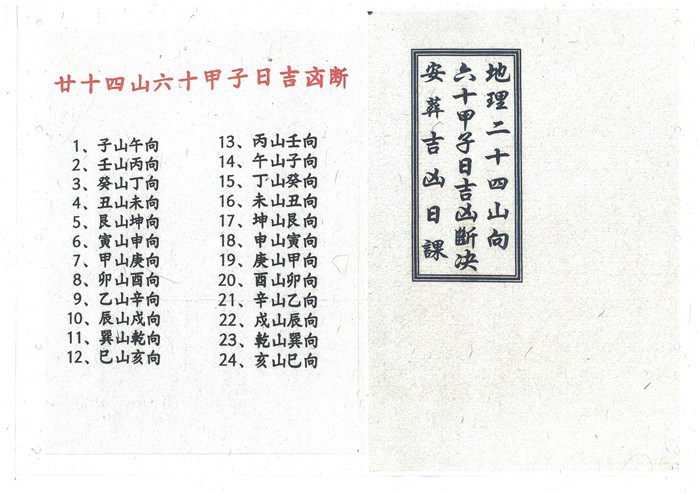 廿十四山六十甲子日吉凶断
1、子山午向
2、壬山丙向
3、癸山丁向
4、丑山未向
5、艮山坤向
6、寅山申向
7、甲山庚向
8、卯山酉向
9、乙山辛向
10、辰山戍向
11、巽山乾向
12、巳山亥向
13、丙山壬向
14、午山子向
15、丁山癸向
16、未山丑向
17、坤山艮向
18、申山寅向
19、庚山甲向
20、酉山卯向
21、辛山乙向
22、戍山辰向
23、乾山巽向
24、亥山巳向
地理二十四山向
六十甲子日吉凶斷决
安葬吉凶日課